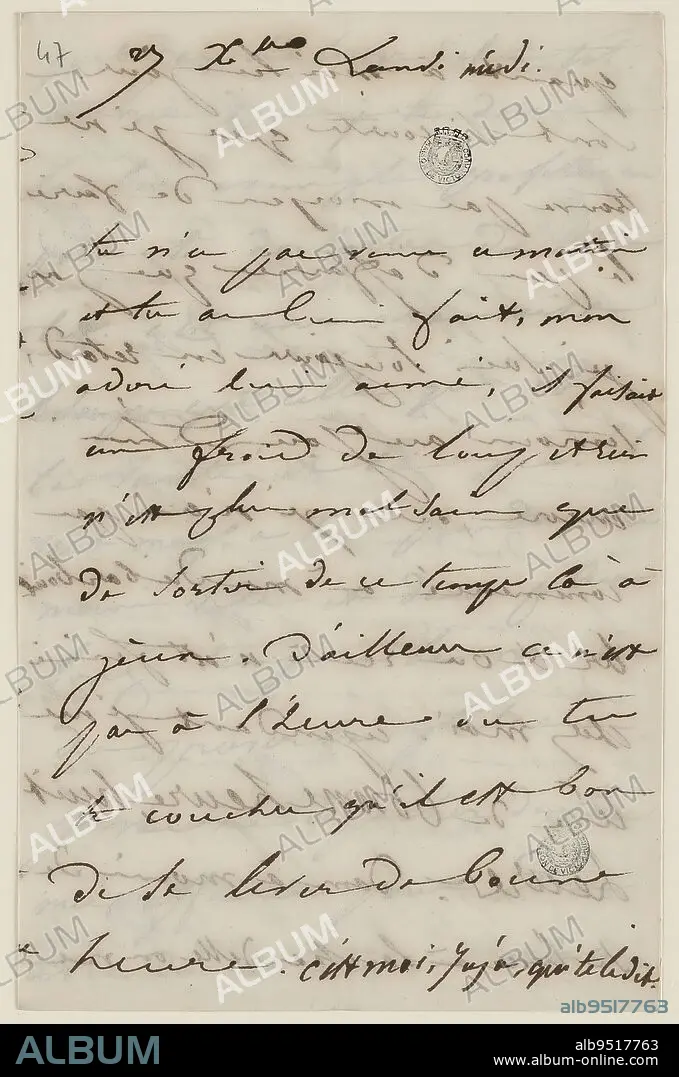 47
27 Xbre Lundi midi.
tu n'es pas venu ce matin
et tu as bien fait, mon
adoré bien aimé, il faisait
un froid de loup et rien
n'est plus malsain que
de sortir de ce temps là à
jeun. D'ailleurs ce n'est
pas à l'heure où tu
te couches qu'il est bon
de se lever de bonne
heure. c'est moi, Juju, qui te le dit.
alb9517763
ALBUM
alb9517763
www.album-online.com